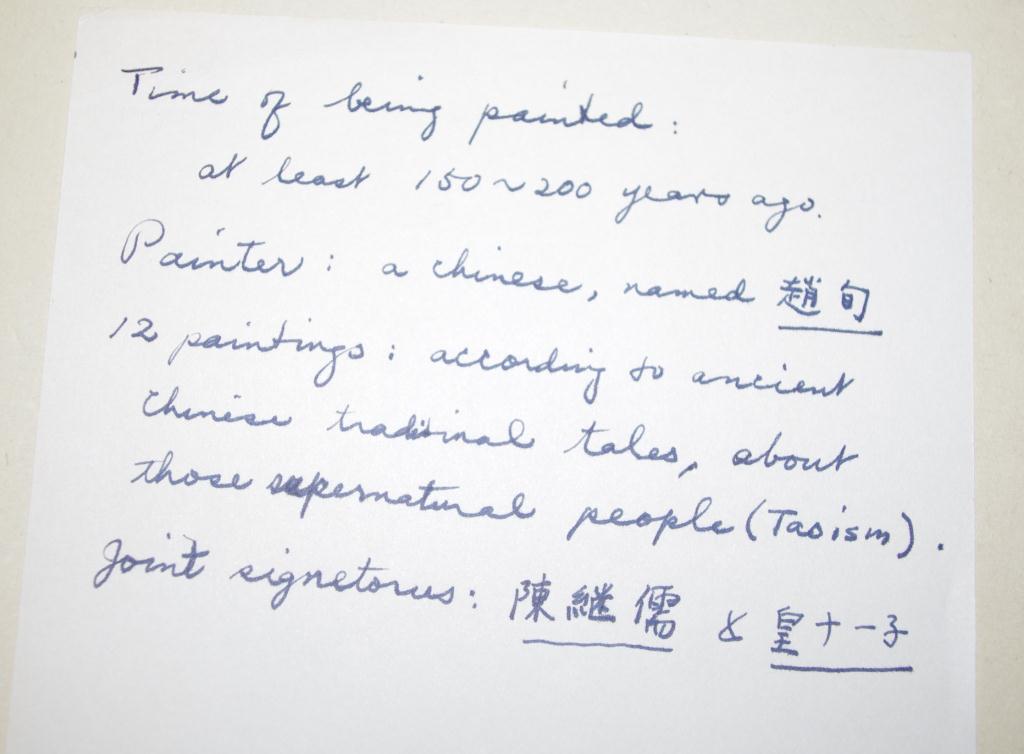 Time of being painted:
at least 150~200 years ago.
Painter: a chinese, named 趙旬
12 paintings: according to ancient
chinese traditinal tales, about
those supernatural people (Taoism).
Joint signetorus: 陳継儒 & 皇十一子